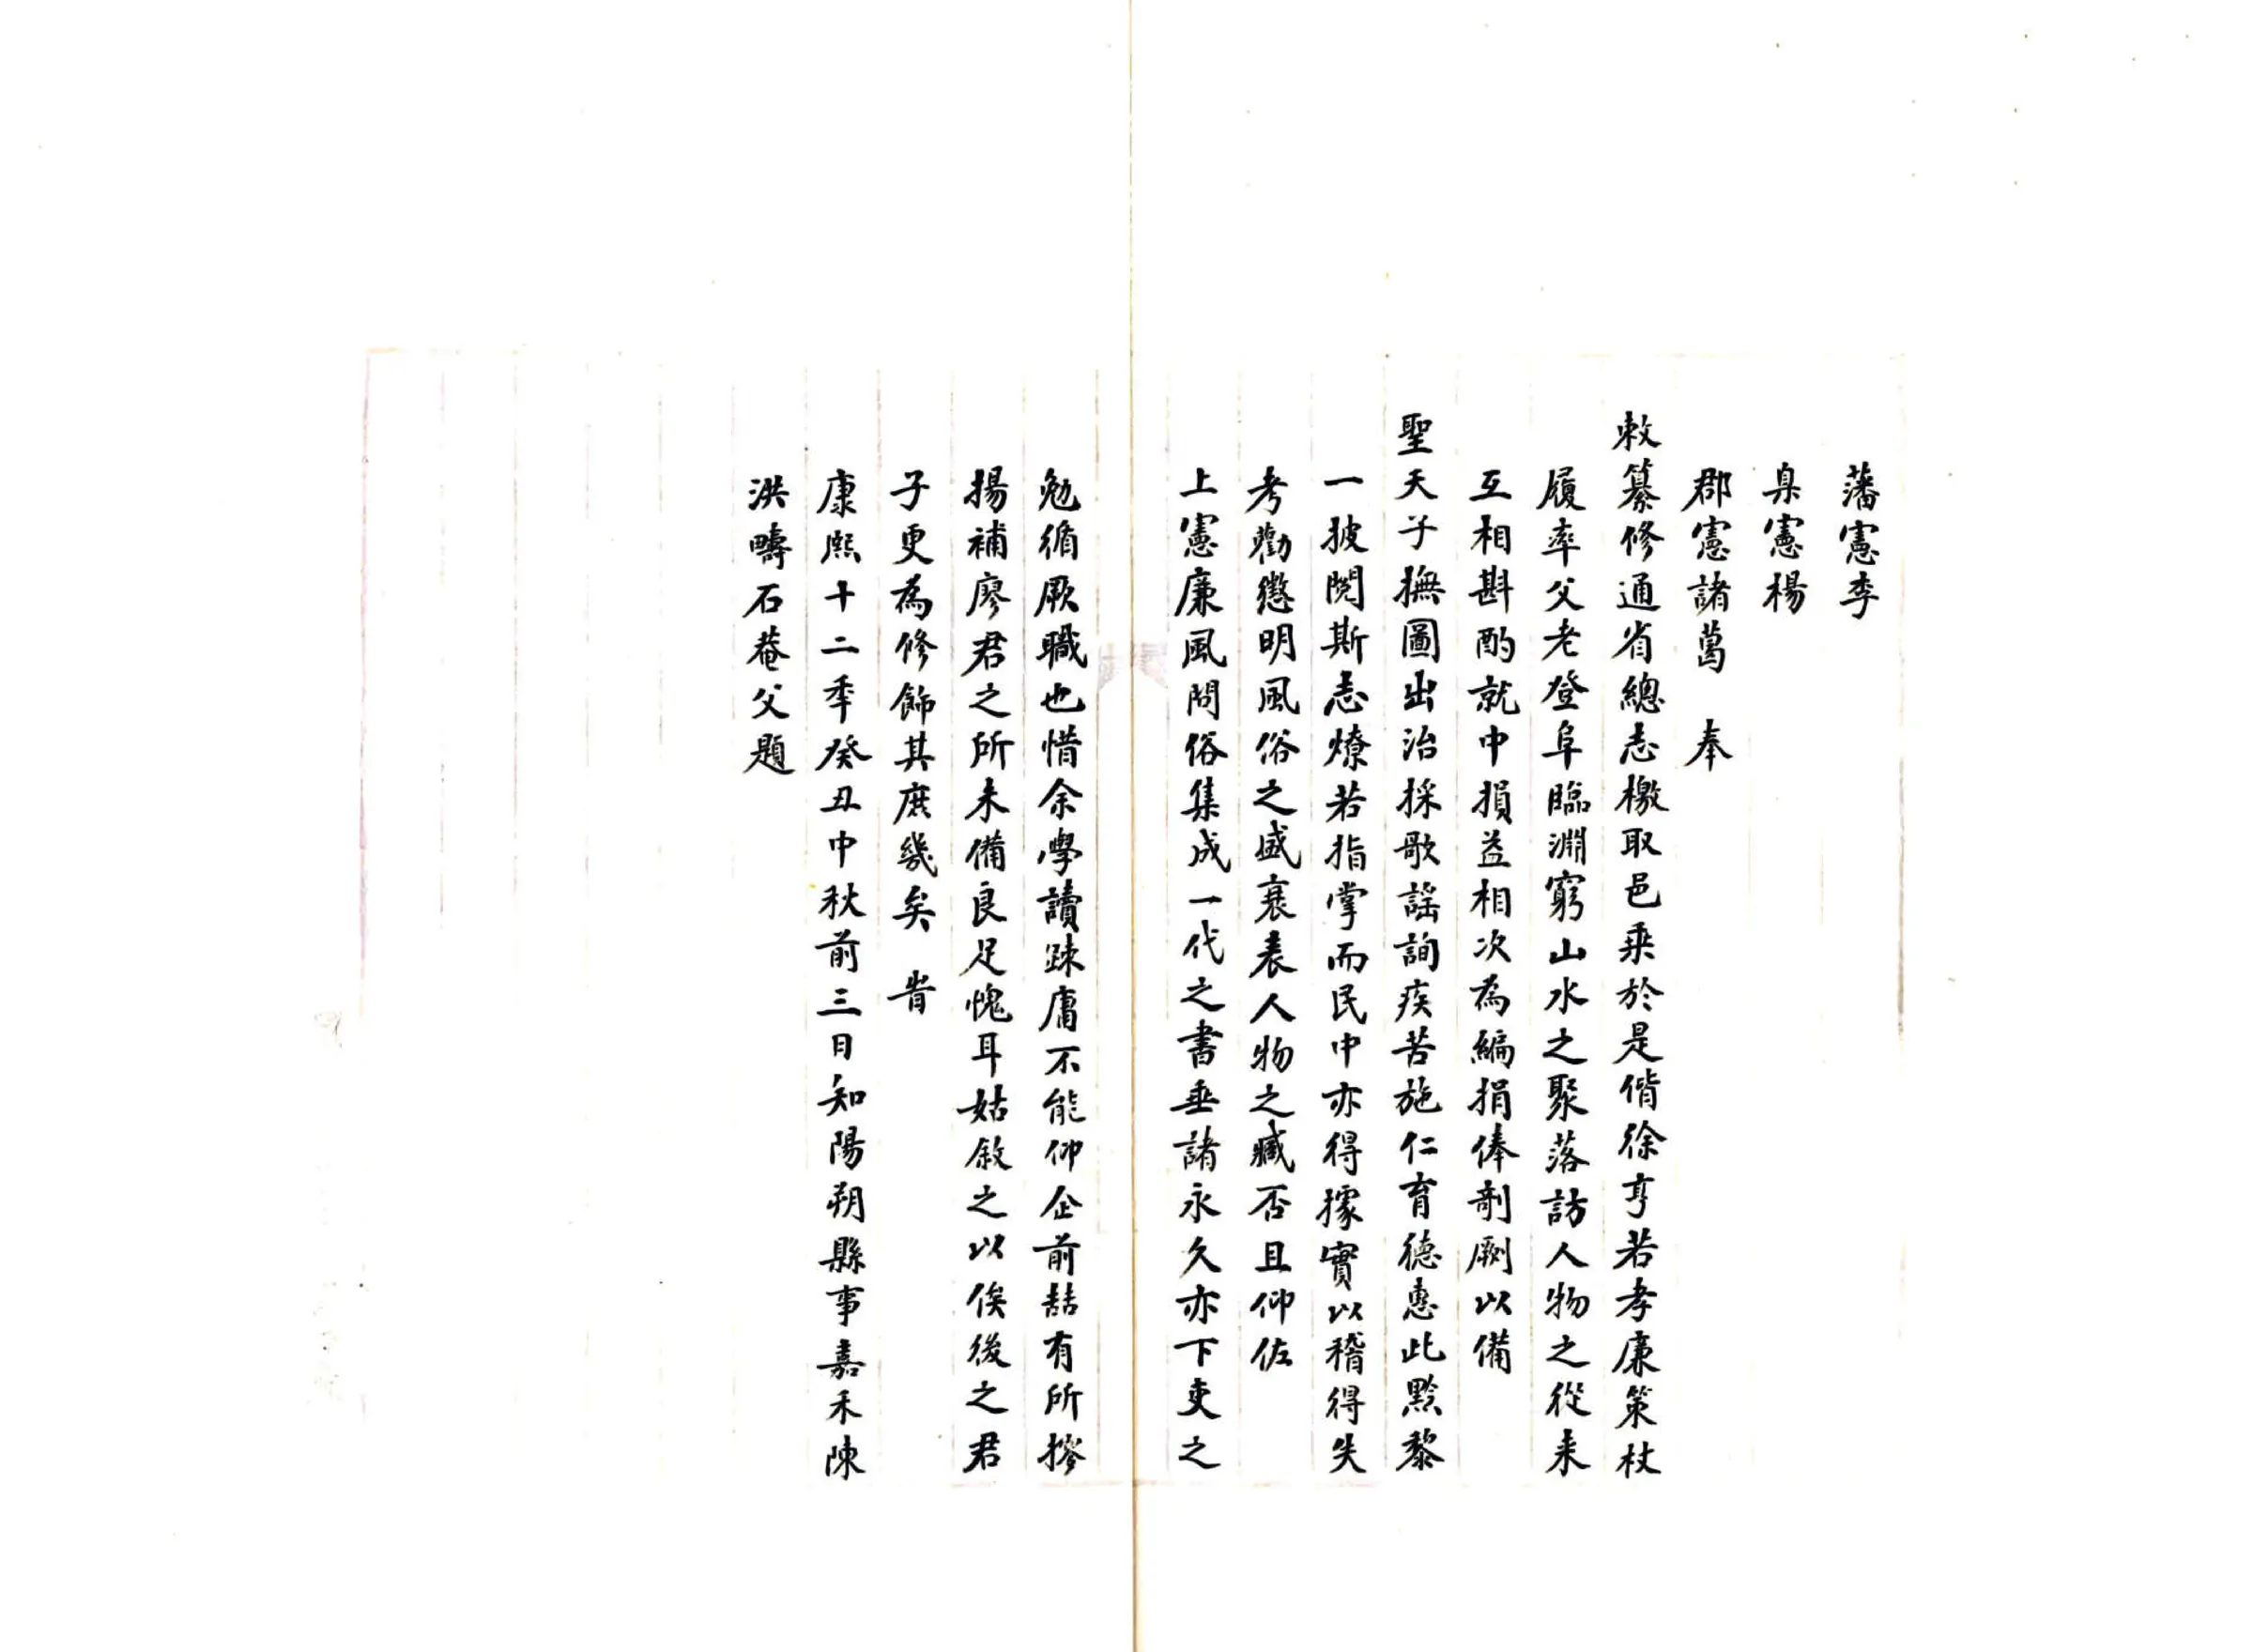 藩憲李
臬憲楊
郡憲諸葛　奉
敕纂修通省總志檄取邑乗於是偕徐亨若孝廉策杖
履率父老登阜臨淵窮山水之聚落訪人物之從来
互相斟酌就中損益相次為編捐俸剞劂以備
聖天子撫圖出治採歌謡詢疾苦施仁育德惠此黔黎
一披閱斯志燎若指掌而民中亦得據實以稽得失
考勸懲明風俗之盛衰表人物之臧否且仰佐
上憲廉風問俗集成一代之書垂諸永久亦下吏之
勉循厥職也惜余學讀踈庸不能仰企前喆有所
揚補廖君之所未備良足愧耳姑敘之以俟後之君
子更為修飾其庶幾矣　旹
康熙十二秊癸丑中秋前三日知陽朔縣事嘉禾陳
洪疇石菴父題